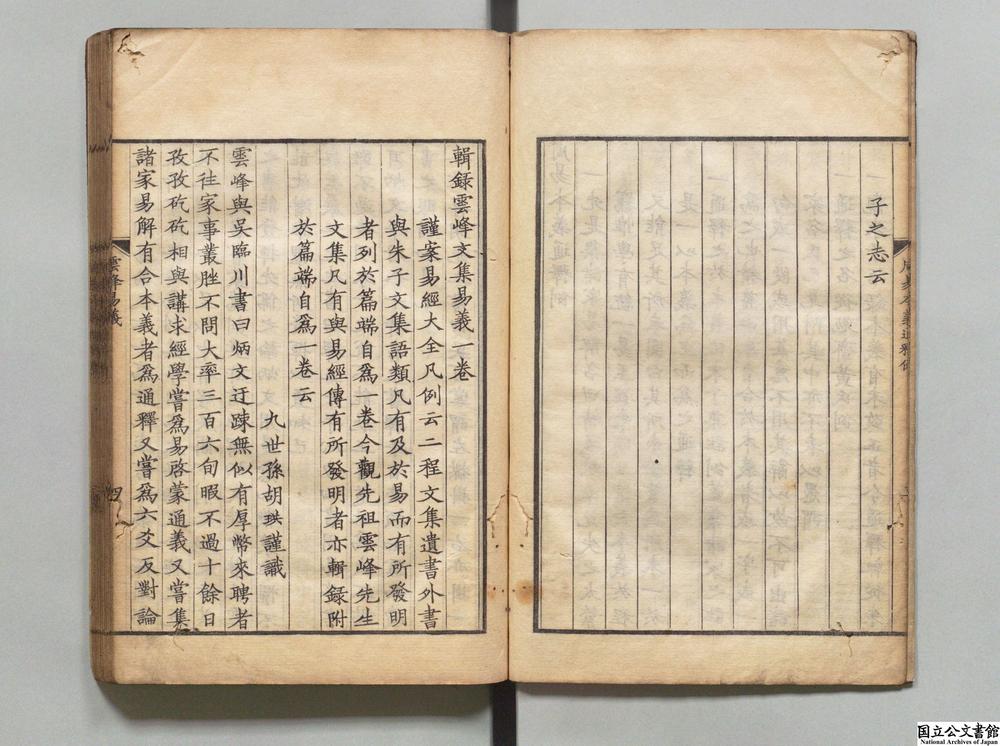 子之志云
輯録雲峰文集易義一卷
謹案易經大全凡例云二程文集遺書外書
與朱子文集語類凡有及於易而有所發明
者列於篇端自爲一卷今觀先祖雲峰先生
文集凡有與易經傳有所發明者亦輯録附
於篇端自爲一卷云
九世孫胡珙謹識
雲峰與吴臨川書曰炳文迂踈無似有厚幣來聘者
不徃家事叢脞不問大率三百六旬暇不過十餘日
孜孜矻矻相與講求經學嘗爲易啓蒙通義又嘗集
諸家易解有合本義者爲通釋又嘗爲六爻反對論
雲峰易義
四
国立公文書館
National Archives of Japan